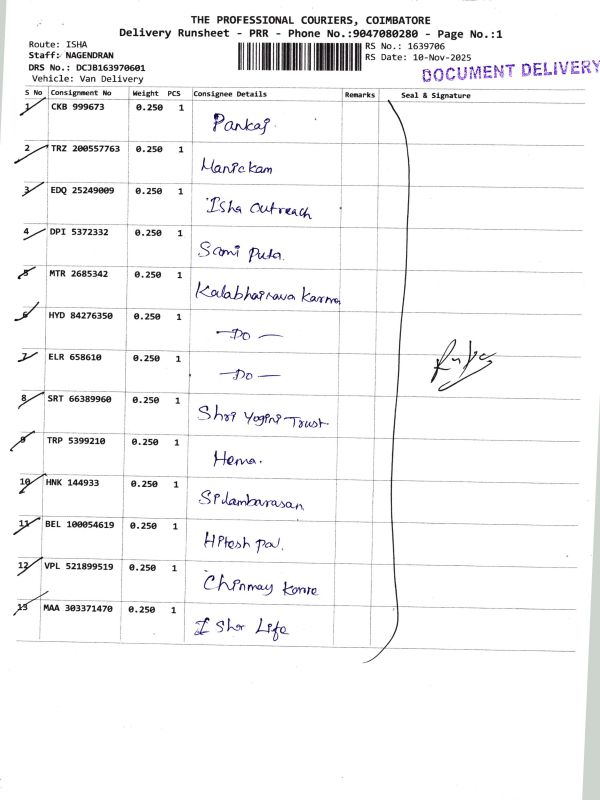 THE PROFESSIONAL COURIERS, COIMBATORE
Delivery Runsheet - PRR - Phone No.:9047080280 - Page No.:1
Route: ISHA
Staff: NAGENDRAN
DRS No.: DCJB163970601
Vehicle: Van Delivery
RS No.: 1639706
RS Date: 10-Nov-2025
DOCUMENT DELIVERY
S No Consignment No Weight PCS Consignee Details Remarks Seal & Signature
1 CKB 999673 0.250 1 Pankaj
2 TRZ 200557763 0.250 1 Manickam
3 EDQ 25249009 0.250 1 Isha Outreach
4 DPI 5372332 0.250 1 Sami Puta.
5 MTR 2685342 0.250 1 Kalabhairava Karma
6 HYD 84276350 0.250 1 -Do-
7 ELR 658610 0.250 1 -Do-
8 SRT 66389960 0.250 1 Shri Yogini Trust
9 TRP 5399210 0.250 1 Hema.
10 HNK 144933 0.250 1 Silambarasan
11 BEL 100054619 0.250 1 Hitesh pal.
12 VPL 521899519 0.250 1 Chinmay
13 MAA 303371470 0.250 1 Isha Life